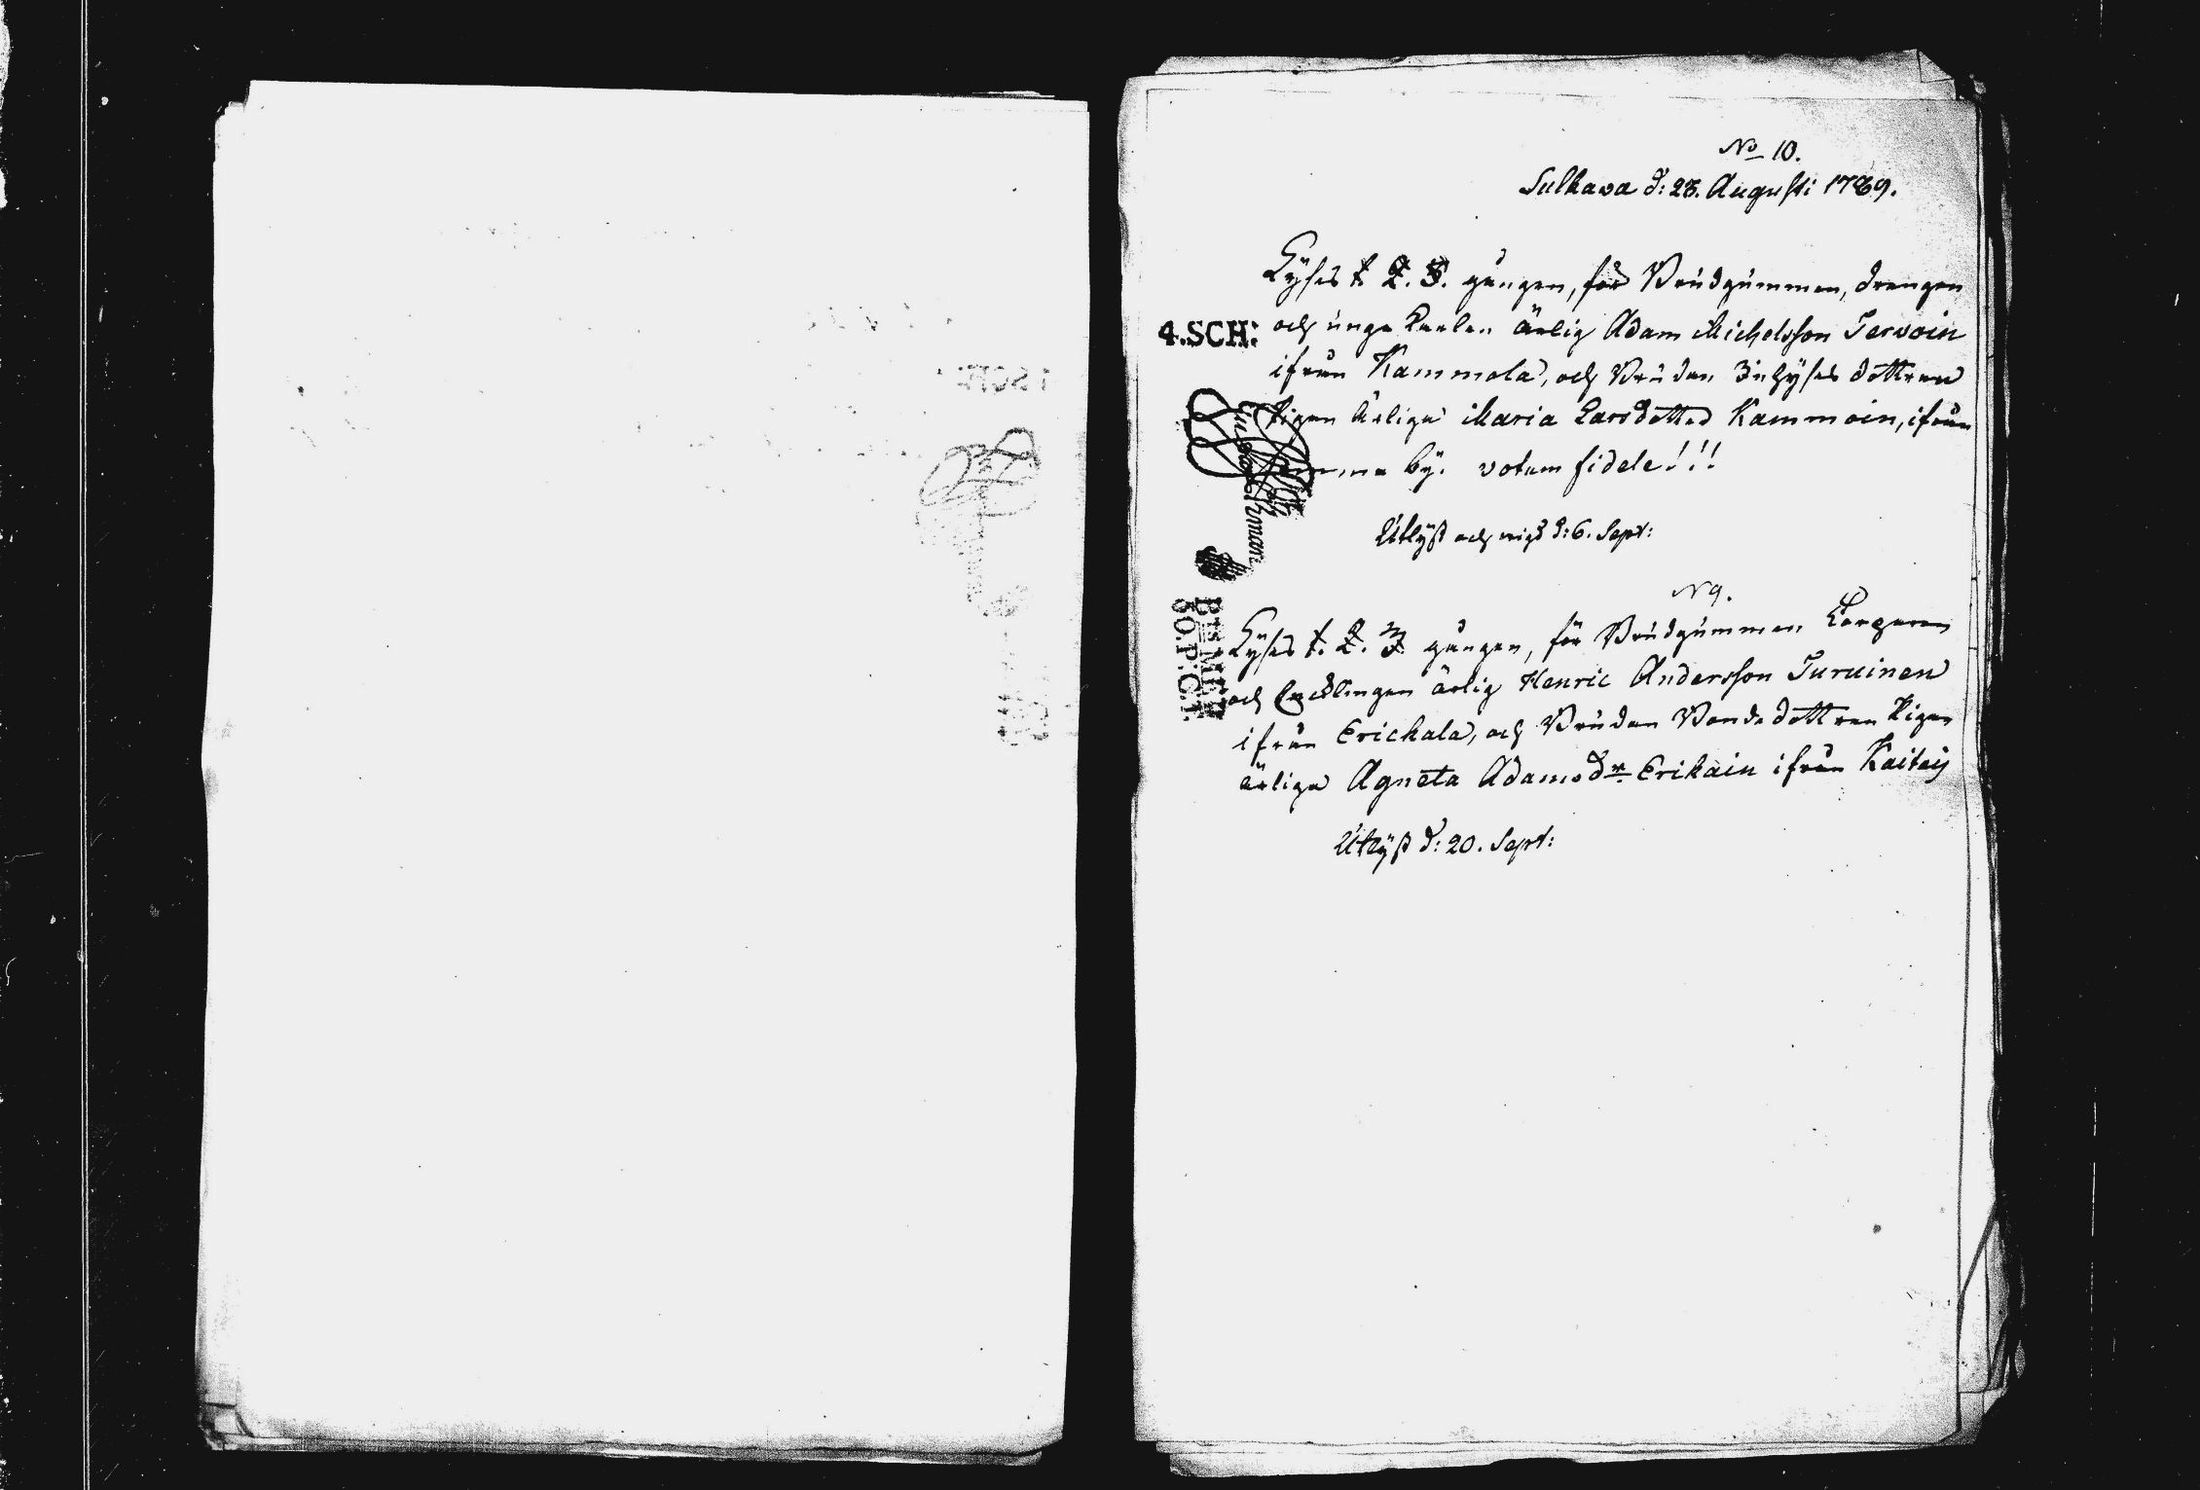 No 10.
Sulkava d: 28. Augusti 1789.
Lyses 1. 2. 3. gången, för Brudgummen, drengen
4.SCH: och unga Karlen ärlig Adam Michelsson Tervoin
ifrån Kammola, och Bruden Inhyses dottren
Pigan ärliga Maria Larsdotter Kammoin, ifrån
samma by. votum fidele!!!
Utlyst och vigd d: 6. Sept:
N 9.
Lyses 1. 2. 3 gången, för Brudgummen
och ärlig Henric Andersson Turuinen
ifrån Erickala, och Bruden Bonde dottren Pigan
ärliga Agneta Adamsdr Erikain ifrån Kaitaij
Utlyst d: 20. Sept:
8O.P:C:T